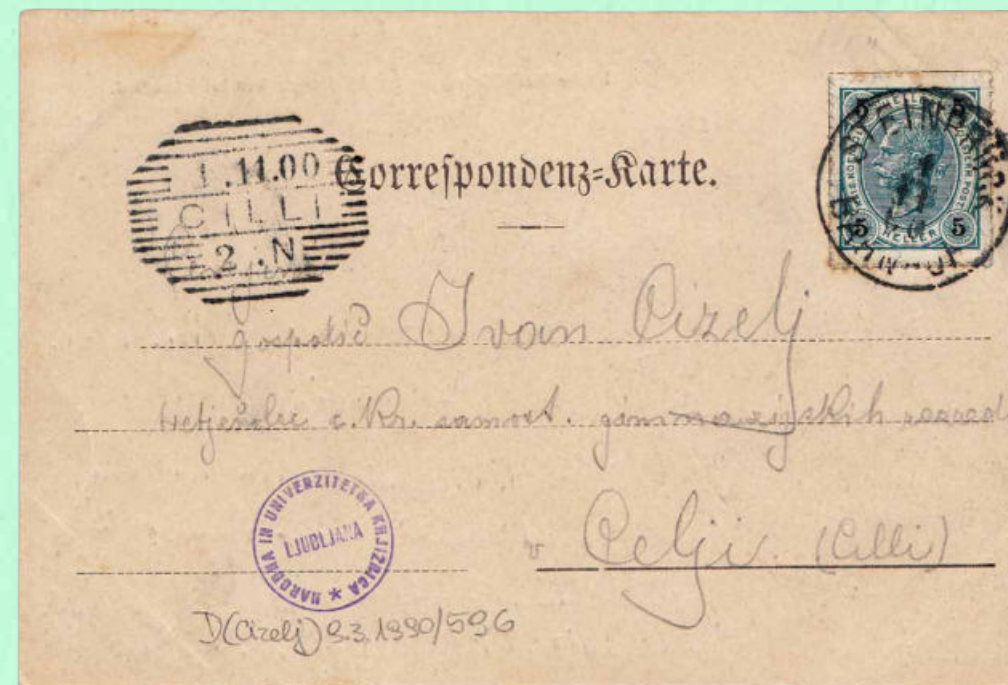 1.11.00
CILLI
2.N
Correspondenz=Karte.
5 5
5 HELLER 5
STEINBRÜCK
gospodič Ivan Cizelj
tretješolec c. kr. samost. gimnazijskih razredov
v Celji (Cilli)
NARODNA IN UNIVERZITETNA KNJIŽNICA
LJUBLJANA
D(Cizelj) 9.3.1990/596